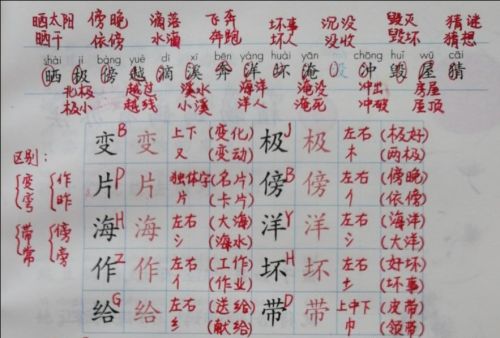 晒太阳 傍晚 滴落 飞奔 坏事 沉没 毁灭 猜谜
晒干 依傍 水滴 奔跑 坏人 没收 毁坏 猜想
shài jí bàng yuè dī xī bēn yáng huài yān chōng huǐ wū cāi
晒 极 傍 越 滴 溪 奔 洋 坏 淹 没 冲 毁 屋 猜
北极 越过 溪水 海洋 淹没 冲出 房屋
极小 越线 小溪 洋人 淹死 冲破 屋顶
变 B 变 上下 (变化) 极 J 极 左右 (极好)
又 (变动) 木 (两极)
区别:
片 P 片 独体字 (名片) 傍 B 傍 左右 (傍晚)
片 (卡片) 亻 (依傍)
变 作
弯 昨
海 H 海 左右 (大海) 洋 Y 洋 左右 (海洋)
氵 (海水) 氵 (大洋)
带 傍
常 旁
作 Z 作 左右 (工作) 坏 H 坏 左右 (好坏)
亻 (作业) 土 (坏事)
给 G 给 左右 (送给) 带 D 带 上中下 (皮带)
纟 (献给) 巾 (领带)